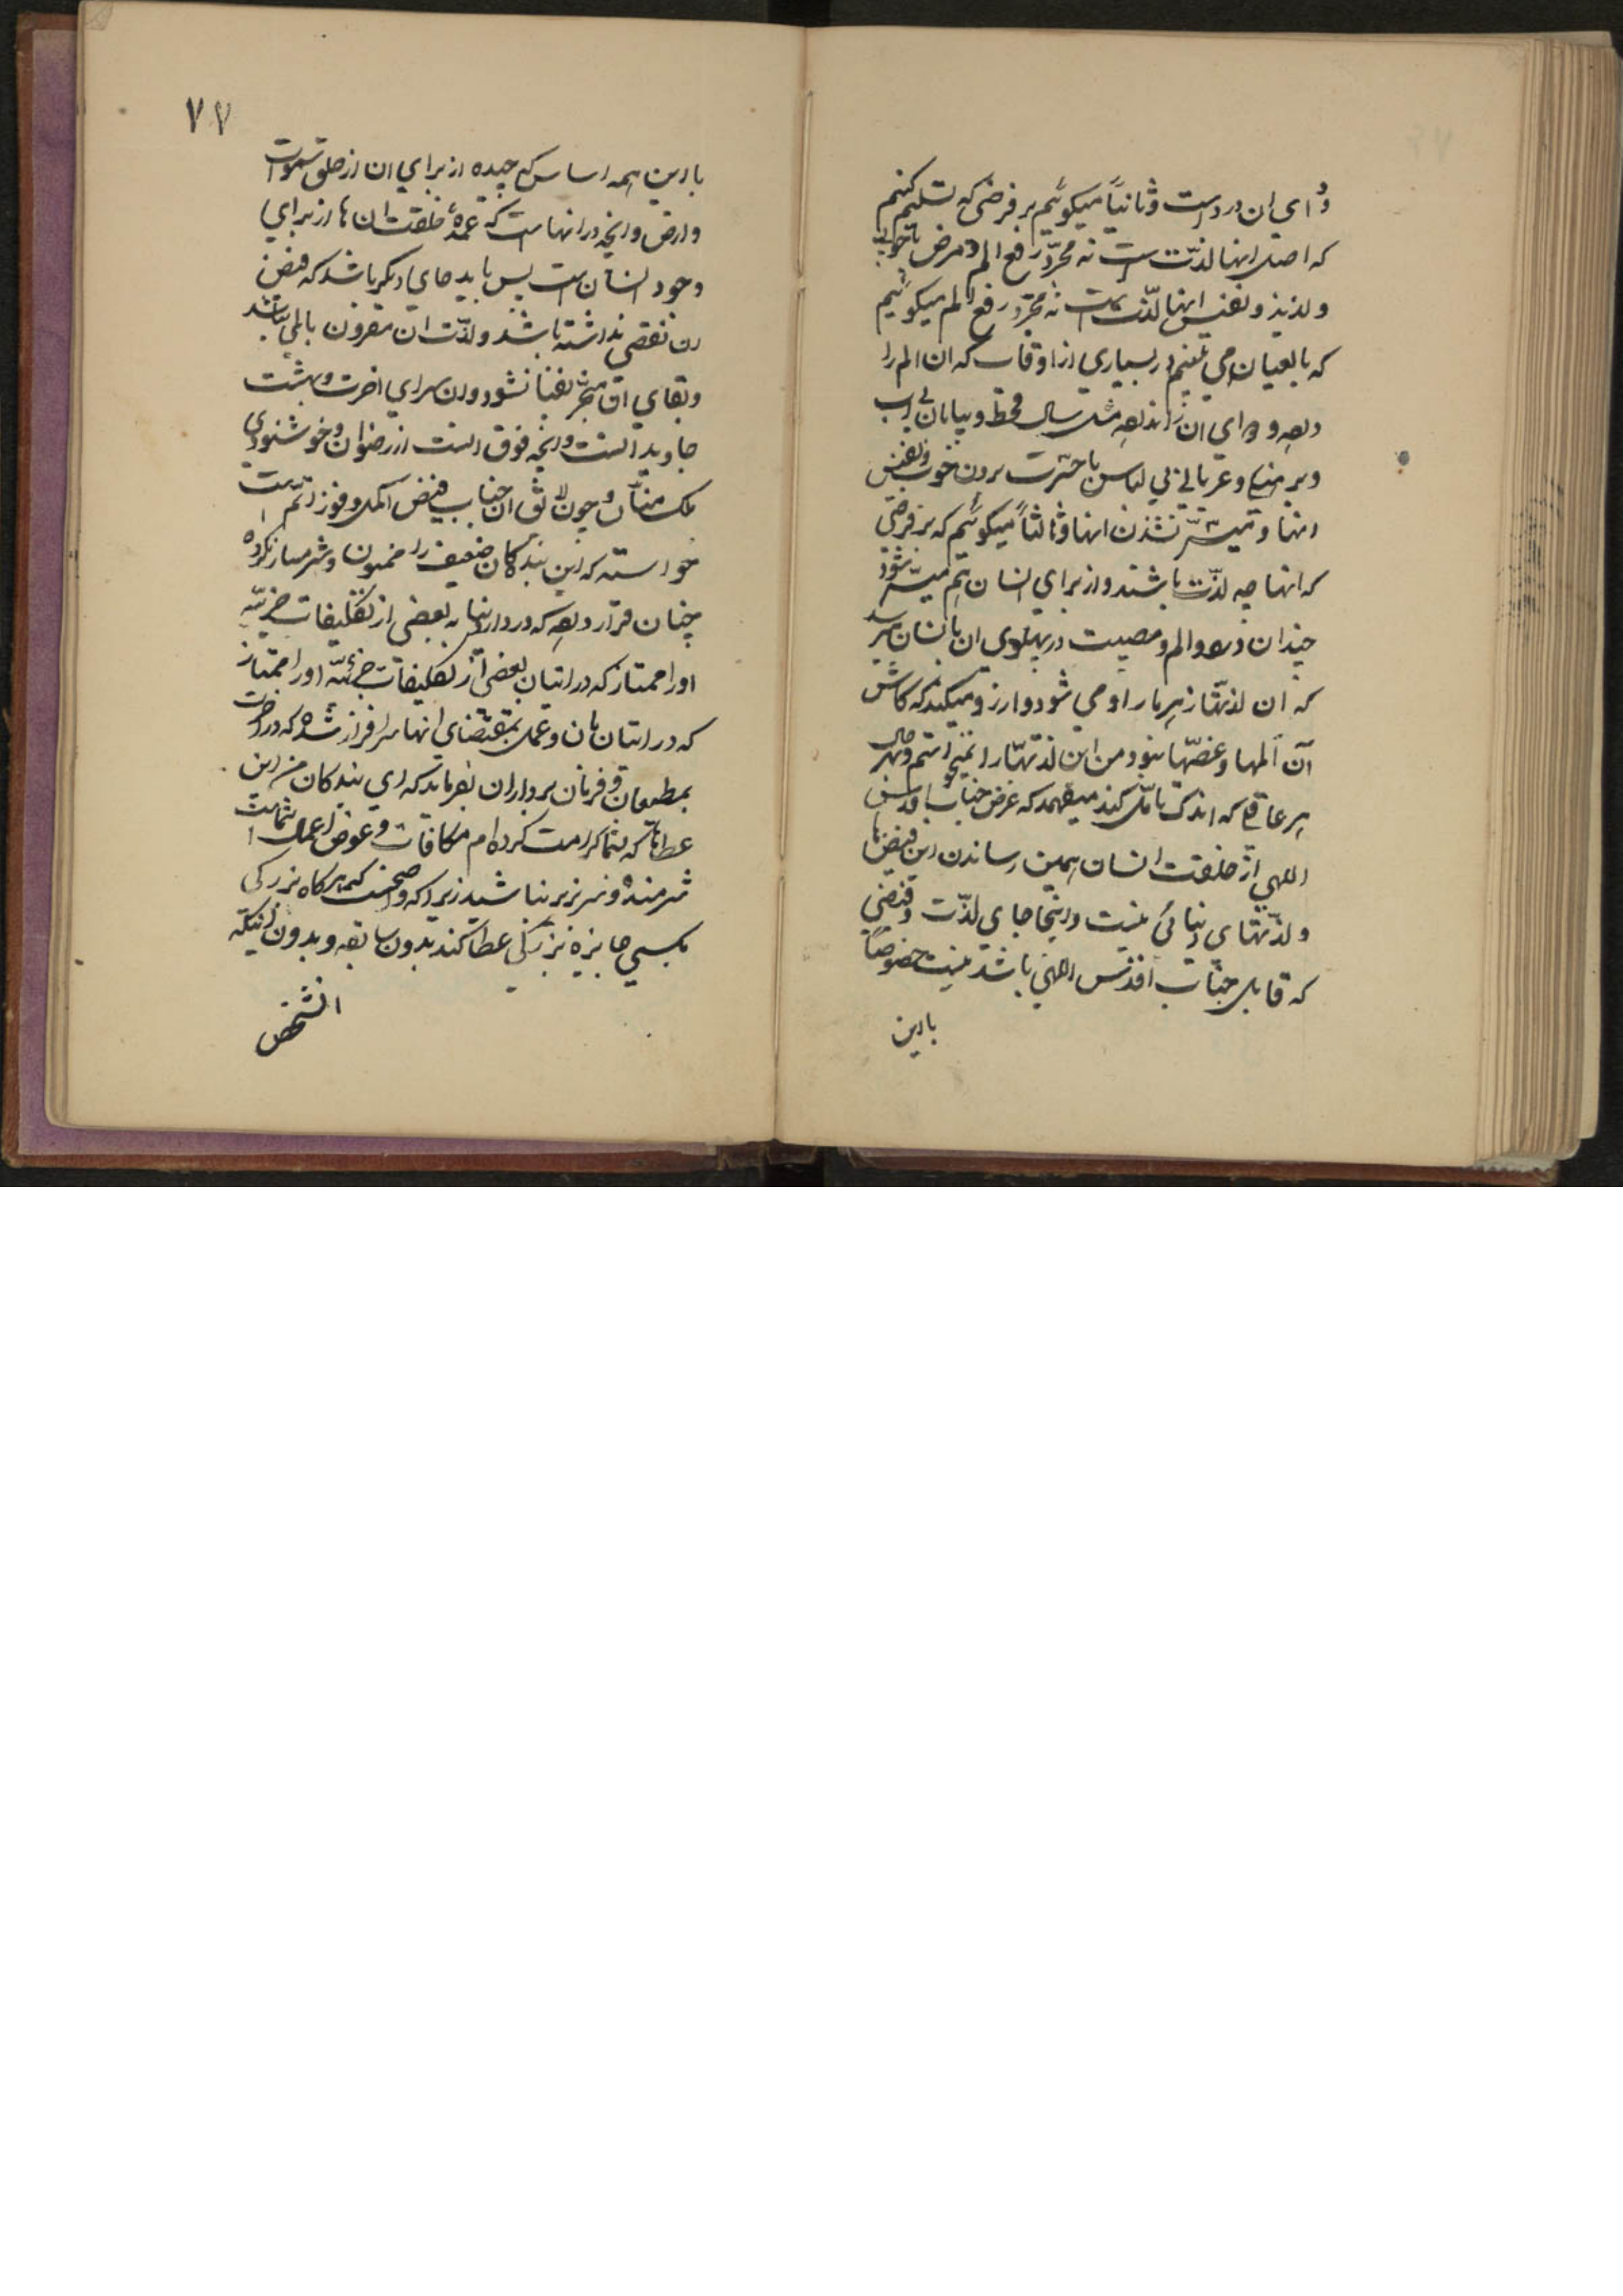 دوای ان درد است و ثانیاً میکوئیم بر فرضی که تسلیم کنیم
که اصل انها لذّت است نه مجرّد رفع الم و مرض یا خوب
ولذیذ و نفیس انها لذّت است نه مجرّد رفع الم میکوئیم
که بالعیان می بینیم در بسیاری از اوقات که ان الم را
داده و دوای ان را نداده مثل سال قحط و بیابان بی اب
وبرهنکی و عریانی بی لباس یا حسرت بردن خوب و نفیس
انها و میسّر نشدن انها و ثالثاً میکوئیم که بر فرضی
که انها همه لذّت باشند و از برای انسان هم میسّر شود
چندان درد و الم و مصیبت در پهلوی ان بانسان میرسد
که ان لذتها زهر مار او می شود و ارزو میکند که کاش
آن المها و غصّها نبود و من این لذتها را نمیخواستم و بهر حال
هر عاقلی که اندک تامّل کند میفهمد که غرض جناب اقدس
اللهی از خلقت انسان همین رساندن این فیضها
ولذّتهای دنیائی نیست و اینجا جای لذّت و فیضی
که قابل جناب اقدس اللهی باشد نیست خصوصاً
بااین
۷۷
بااین همه اساس که چیده از برای ان از خلق سموات
وارض و انچه در انهاست که عمدهٔ خلقت ان ها از برای
وجود انسان است پس باید جای دیکر باشد که فیض
ان نقصی نداشته باشد و لذّت ان مقرون بالمی نباشد
وبقای ان منجرّ بفنا نشود و ان سرای اخرت و بهشت
جاوید است و انچه فوق انست از رضوان و خوشنودی
ملک منّان و چون لائق ان جناب فیض اکمل و فوز اتم است
خواسته که این بندکان ضعیف را ممنون و شرمسار نکرده
چنان قرار داده که در دار دنیا به بعضی از تکلیفات جزئیّه
او را ممتاز که در اتیان بعضی از تکلیفات جزئیّه او را ممتاز
که در اتیان بان و عمل بمقتضای انها سرافراز شده که در اخرت
بمطیعان و فرمان برداران بفرماید که ای بندکان من این
عطاها که بشما کرامت کرده ام مکافات و عوض اعمال شماست
شرمنده و سر بزیر نباشید زیرا که واضح است که هرکاه بزرکی
بکسی جایزه بزرکی عطا کند بدون سابقه و بدون اینکه
انشخص